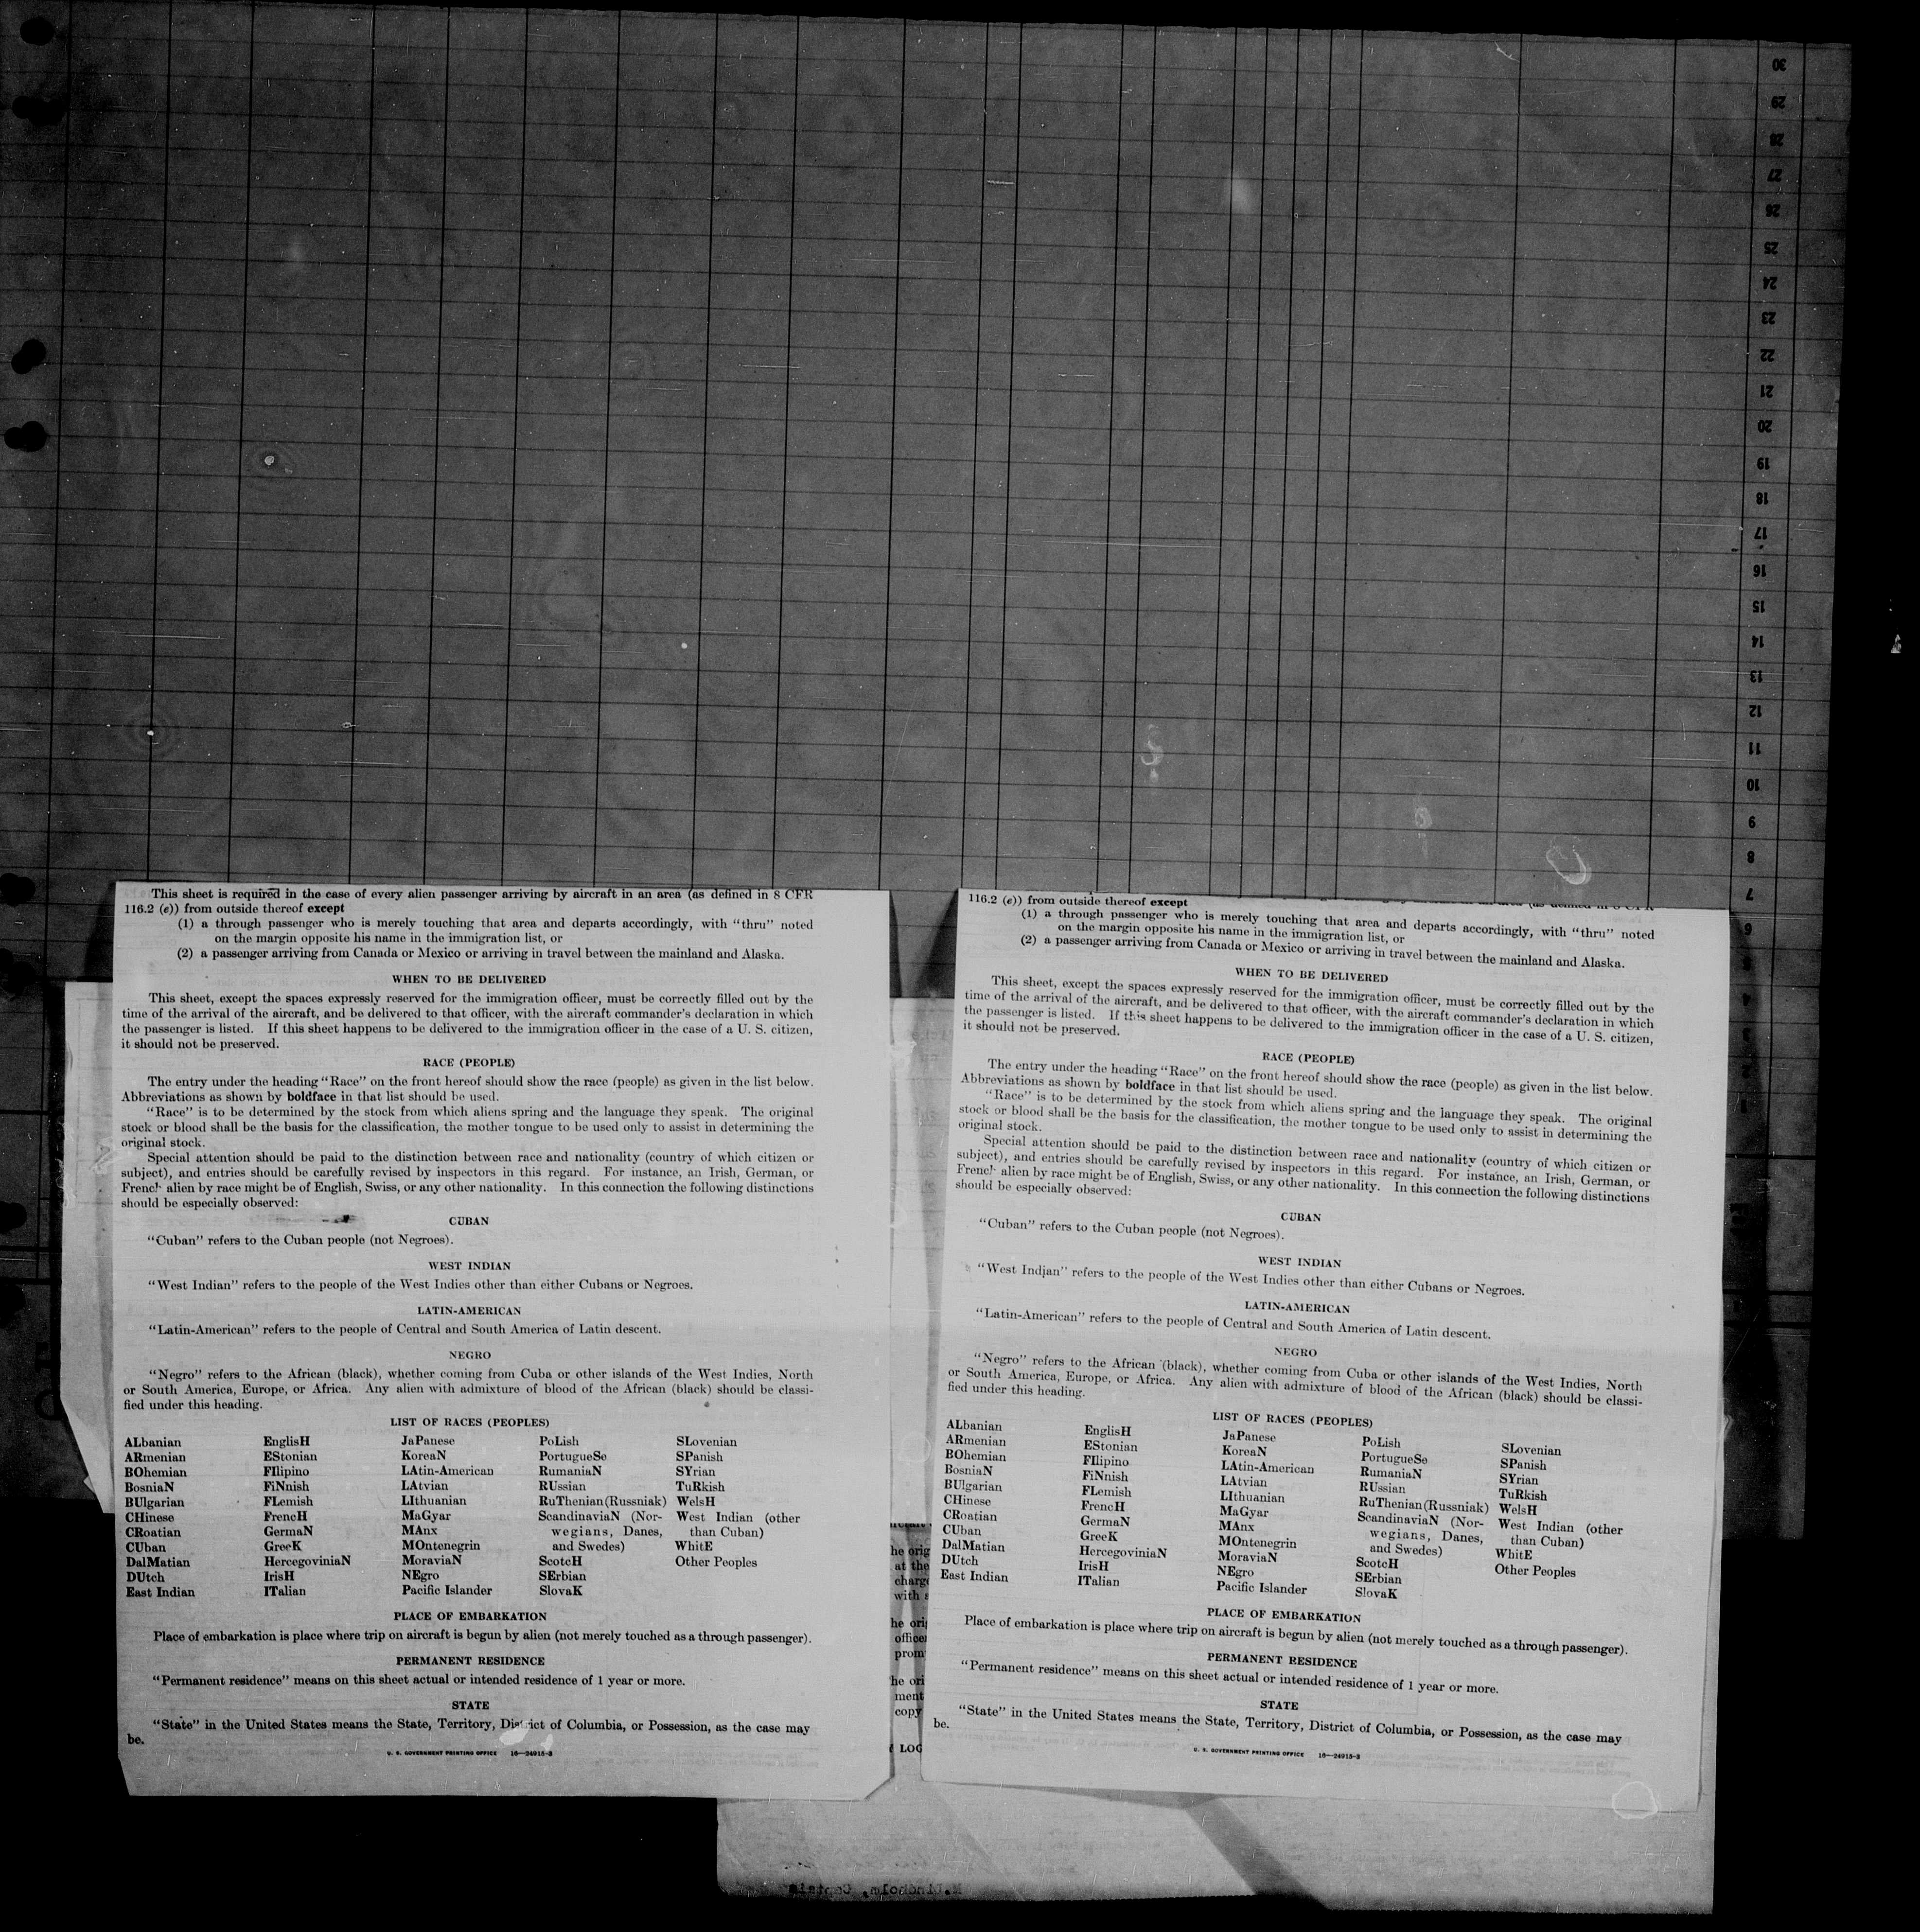 30
29
28
27
26
25
24
23
22
21
20
19
18
17
16
15
14
13
12
11
10
9
8
7
6
This sheet is required in the case of every alien passenger arriving by aircraft in an area (as defined in 8 CFR
116.2 (e)) from outside thereof except
(1) a through passenger who is merely touching that area and departs accordingly, with "thru" noted
on the margin opposite his name in the immigration list, or
(2) a passenger arriving from Canada or Mexico or arriving in travel between the mainland and Alaska.
WHEN TO BE DELIVERED
This sheet, except the spaces expressly reserved for the immigration officer, must be correctly filled out by the
time of the arrival of the aircraft, and be delivered to that officer, with the aircraft commander's declaration in which
the passenger is listed. If this sheet happens to be delivered to the immigration officer in the case of a U. S. citizen,
it should not be preserved.
RACE (PEOPLE)
The entry under the heading "Race" on the front hereof should show the race (people) as given in the list below.
Abbreviations as shown by boldface in that list should be used.
"Race" is to be determined by the stock from which aliens spring and the language they speak. The original
stock or blood shall be the basis for the classification, the mother tongue to be used only to assist in determining the
original stock.
Special attention should be paid to the distinction between race and nationality (country of which citizen or
subject), and entries should be carefully revised by inspectors in this regard. For instance, an Irish, German, or
French alien by race might be of English, Swiss, or any other nationality. In this connection the following distinctions
should be especially observed:
CUBAN
"Cuban" refers to the Cuban people (not Negroes).
WEST INDIAN
"West Indian" refers to the people of the West Indies other than either Cubans or Negroes.
LATIN-AMERICAN
"Latin-American" refers to the people of Central and South America of Latin descent.
NEGRO
"Negro" refers to the African (black), whether coming from Cuba or other islands of the West Indies, North
or South America, Europe, or Africa. Any alien with admixture of blood of the African (black) should be classi-
fied under this heading.
LIST OF RACES (PEOPLES)
ALbanian EnglisH JaPanese PoLish SLovenian
ARmenian EStonian KoreaN PortugueSe SPanish
BOhemian FIlipino LAtin-American RumaniaN SYrian
BosniaN FiNnish LAtvian RUssian TuRkish
BUlgarian FLemish LIthuanian RuThenian (Russniak) WelsH
CHinese FrencH MaGyar ScandinaviaN (Nor- West Indian (other
CRoatian GermaN MAnx wegians, Danes, than Cuban)
CUban GreeK MOntenegrin and Swedes) WhitE
DalMatian HercegoviniaN MoraviaN ScotcH Other Peoples
DUtch IrisH NEgro SErbian
East Indian ITalian Pacific Islander SlovaK
PLACE OF EMBARKATION
Place of embarkation is place where trip on aircraft is begun by alien (not merely touched as a through passenger).
PERMANENT RESIDENCE
"Permanent residence" means on this sheet actual or intended residence of 1 year or more.
STATE
"State" in the United States means the State, Territory, District of Columbia, or Possession, as the case may
be.
U. S. GOVERNMENT PRINTING OFFICE 16—24915-3
he orig
at the
charge
with
he ori
office
prom
he ori
ment
copy
LOG
116.2 (e)) from outside thereof except
(1) a through passenger who is merely touching that area and departs accordingly, with "thru" noted
on the margin opposite his name in the immigration list, or
(2) a passenger arriving from Canada or Mexico or arriving in travel between the mainland and Alaska.
WHEN TO BE DELIVERED
This sheet, except the spaces expressly reserved for the immigration officer, must be correctly filled out by the
time of the arrival of the aircraft, and be delivered to that officer, with the aircraft commander's declaration in which
the passenger is listed. If this sheet happens to be delivered to the immigration officer in the case of a U. S. citizen,
it should not be preserved.
RACE (PEOPLE)
The entry under the heading "Race" on the front hereof should show the race (people) as given in the list below.
Abbreviations as shown by boldface in that list should be used.
"Race" is to be determined by the stock from which aliens spring and the language they speak. The original
stock or blood shall be the basis for the classification, the mother tongue to be used only to assist in determining the
original stock.
Special attention should be paid to the distinction between race and nationality (country of which citizen or
subject), and entries should be carefully revised by inspectors in this regard. For instance, an Irish, German, or
French alien by race might be of English, Swiss, or any other nationality. In this connection the following distinctions
should be especially observed:
CUBAN
"Cuban" refers to the Cuban people (not Negroes).
WEST INDIAN
"West Indian" refers to the people of the West Indies other than either Cubans or Negroes.
LATIN-AMERICAN
"Latin-American" refers to the people of Central and South America of Latin descent.
NEGRO
"Negro" refers to the African (black), whether coming from Cuba or other islands of the West Indies, North
or South America, Europe, or Africa. Any alien with admixture of blood of the African (black) should be classi-
fied under this heading.
LIST OF RACES (PEOPLES)
ALbanian EnglisH JaPanese PoLish SLovenian
ARmenian EStonian KoreaN PortugueSe SPanish
BOhemian FIlipino LAtin-American RumaniaN SYrian
BosniaN FiNnish LAtvian RUssian TuRkish
BUlgarian FLemish LIthuanian RuThenian (Russniak) WelsH
CHinese FrencH MaGyar ScandinaviaN (Nor- West Indian (other
CRoatian GermaN MAnx wegians, Danes, than Cuban)
CUban GreeK MOntenegrin and Swedes) WhitE
DalMatian HercegoviniaN MoraviaN ScotcH Other Peoples
DUtch IrisH NEgro SErbian
East Indian ITalian Pacific Islander SlovaK
PLACE OF EMBARKATION
Place of embarkation is place where trip on aircraft is begun by alien (not merely touched as a through passenger).
PERMANENT RESIDENCE
"Permanent residence" means on this sheet actual or intended residence of 1 year or more.
STATE
"State" in the United States means the State, Territory, District of Columbia, or Possession, as the case may
be.
U. S. GOVERNMENT PRINTING OFFICE 16—24915-3
Lindholm, Captain